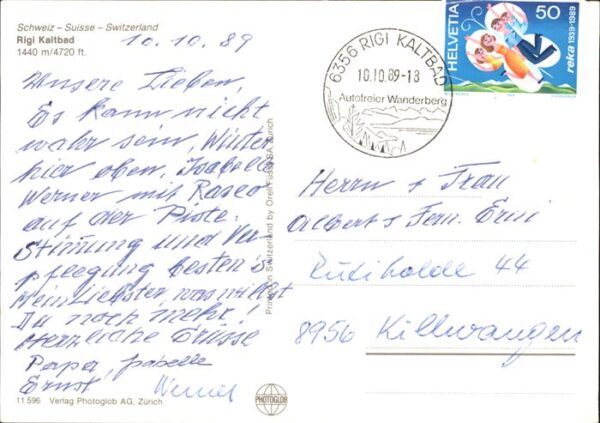 Schweiz – Suisse – Switzerland
Rigi Kaltbad
1440 m/4720 ft.
10.10.89
Unsere Lieben,
Es kann nicht
wahr sein, Winter
hier oben, Isabelle
Werner mit Rasco
auf der Piste.
Stimmung und Ver-
pflegung bestens
Mein Liebster, was willst
Du noch mehr!
Herzliche Grüsse
Papa, Isabelle
Ernst Werner
11 596 Verlag Photoglob AG, Zürich
Printed in Switzerland by Orell Füssli SA, Zürich
PHOTOGLOB
6356 RIGI KALTBAD
10.10.89-18
Autofreier Wanderberg
HELVETIA 50
reka 1939-1989
Herrn & Frau
Albert & Fern. Erni
Rütihalde 44
8956 Killwangen